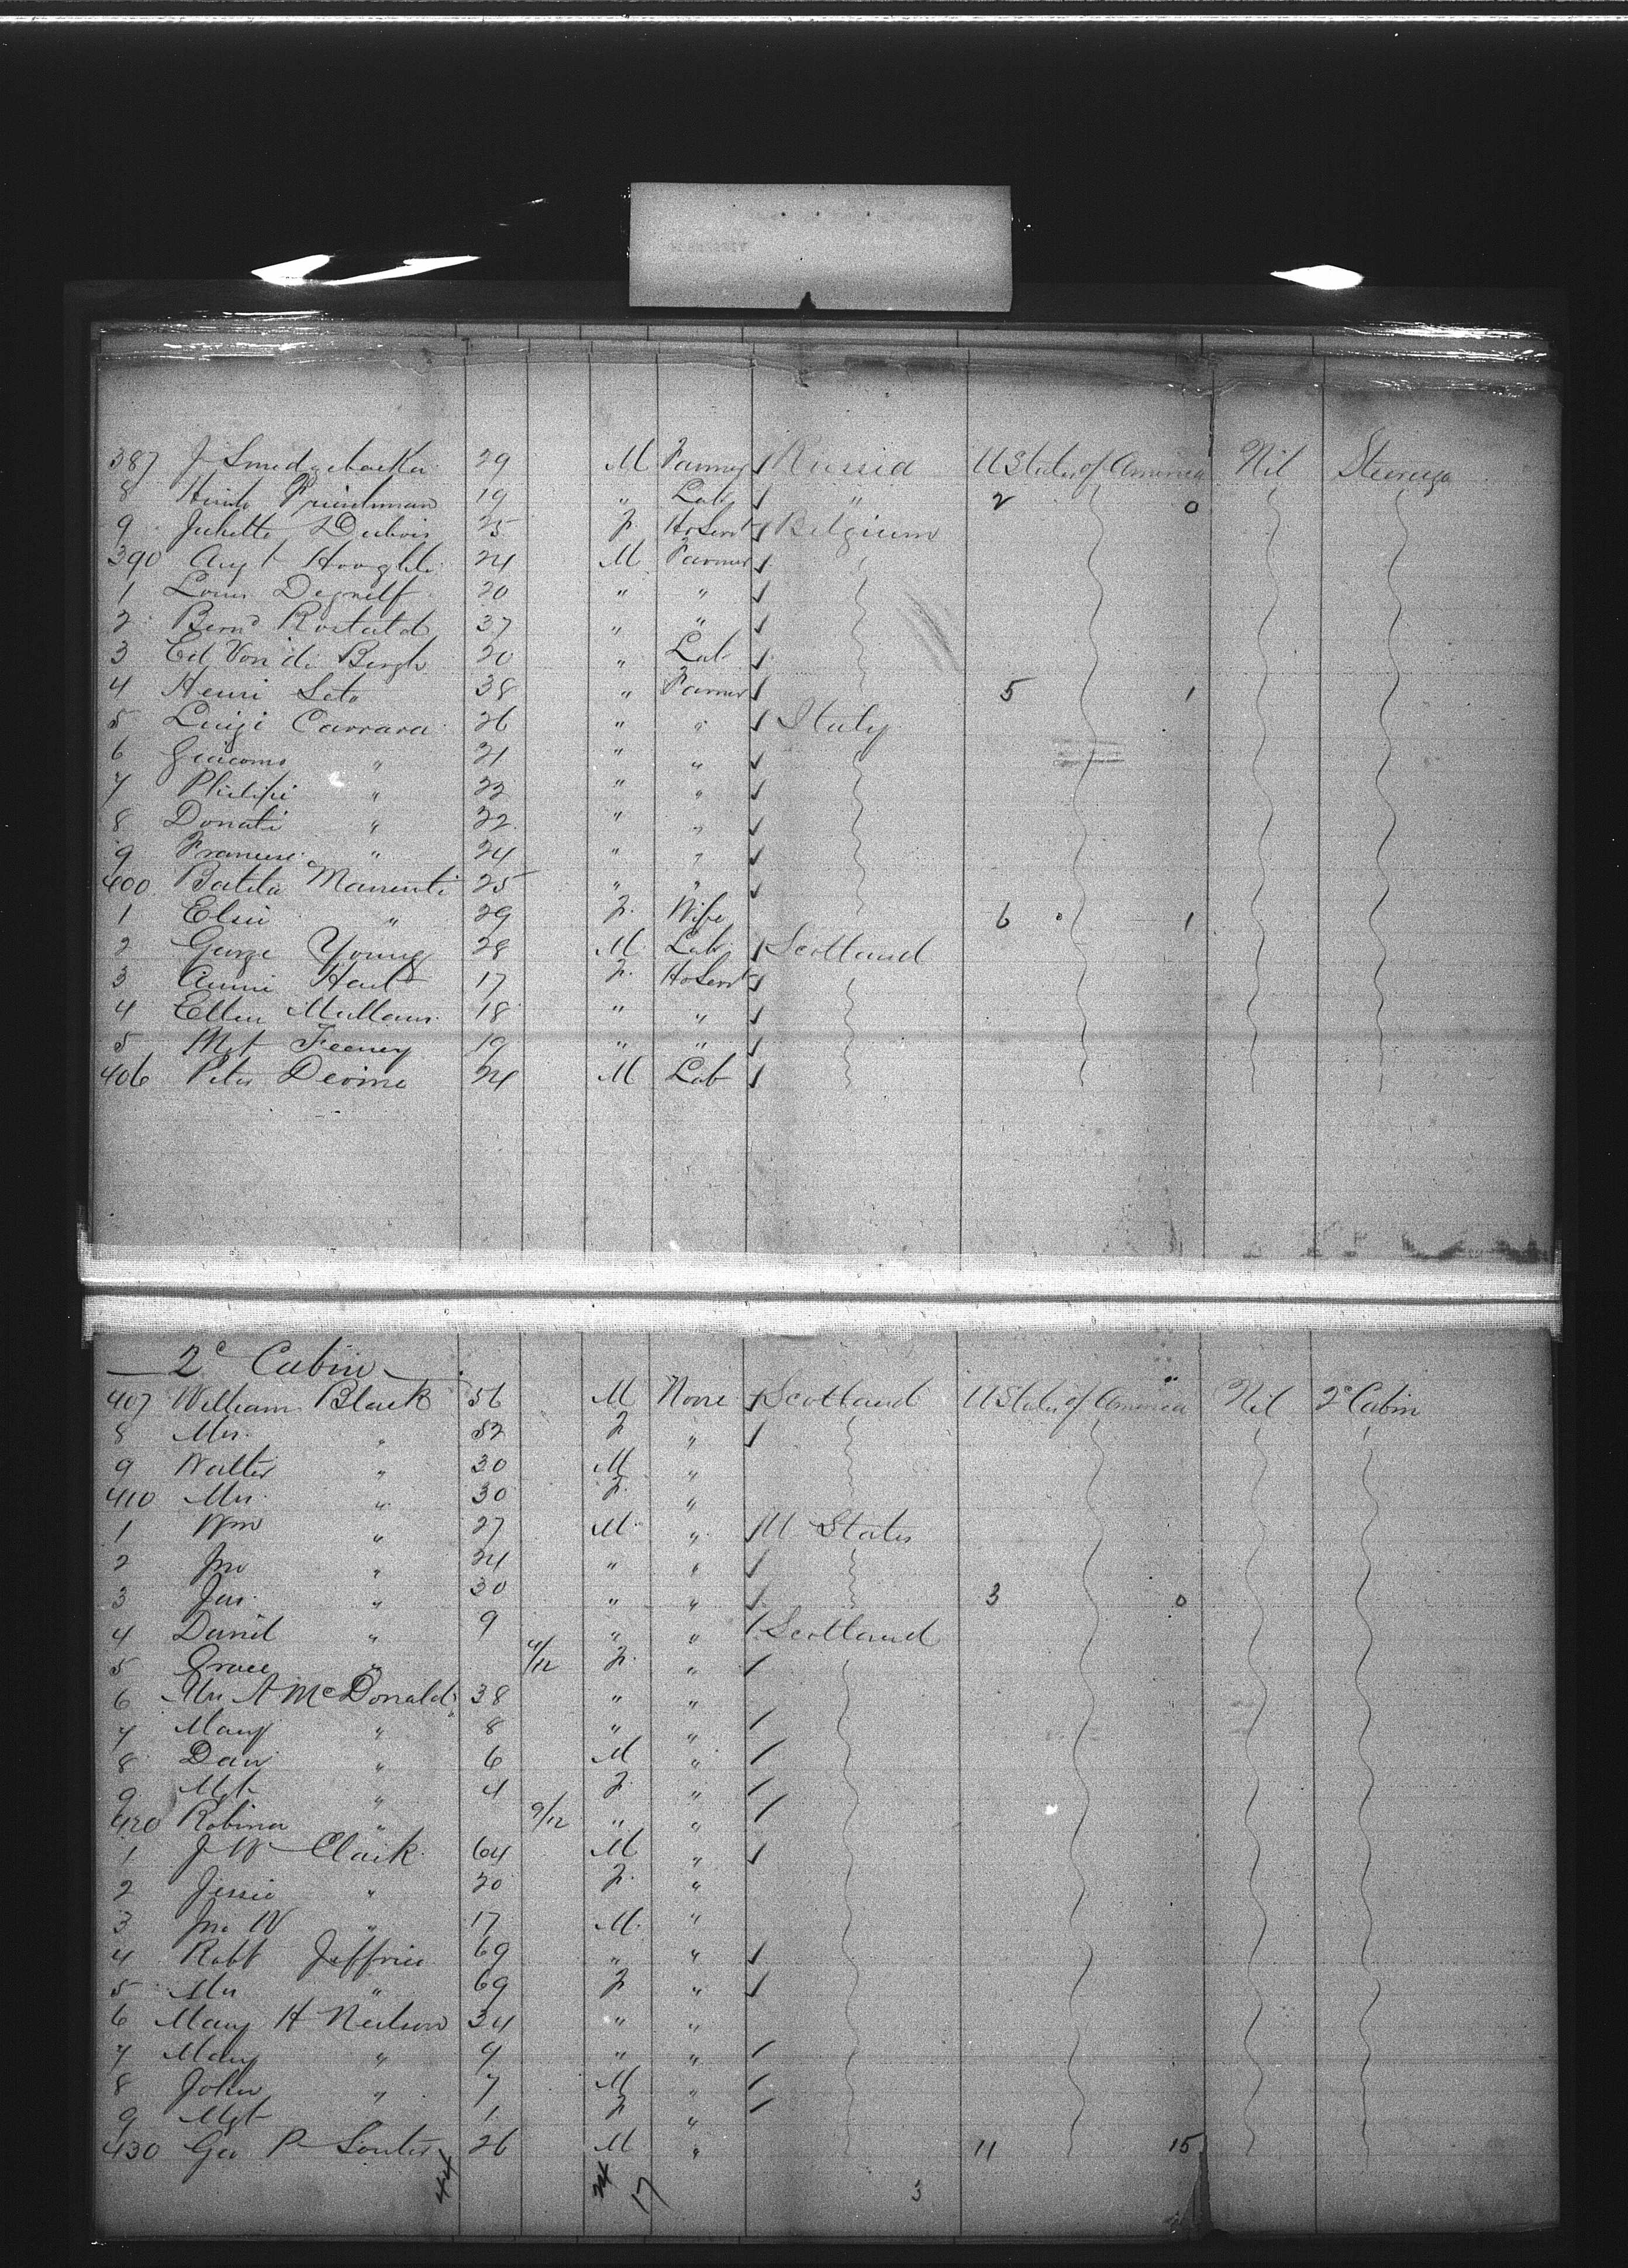 387 J 29 M Farmer Russia U States of America Nil Steerage
8 19 " Lab " 2 0
9 Juliette Dubois 25 F HoServt Belgium
390 Augt 24 M Farmer
1 Louis 20 " "
2 Bernd 37 " "
3 Ed Van de Bergh 20 " Lab
4 Henri 38 " Farmer 5 1
5 Luigi Carrara 26 " " Italy
6 Giacomo " 21 " "
7 Philipi " 22 " "
8 Donati " 32 " "
9 " 24 " "
400 Manenti 25 " "
1 " 29 F. Wife 6 1
2 George Young 28 M Lab Scotland
3 Annie 17 F. HoServt
4 Ellen 18 " "
5 Mgt Feeney 19 " "
406 Peter Devine 24 M Lab
2c Cabin
407 William Black 56 M None Scotland U States of America Nil 2c Cabin
8 Mrs. " 52 F "
9 Walter " 30 M "
410 Mrs. " 30 F. "
1 Wm " 27 M. " U States
2 Jno " 24 " "
3 Jas. " 30 " " 3 0
4 David " 9 " " Scotland
5 Grace " 4/12 F. "
6 Mrs A McDonald 38 " "
7 Mary " 8 " "
8 " 6 M "
9 Mgt " 4 F. "
420 Robina " 9/12 " "
1 J W Clark 64 M "
2 Jessie " 20 F. "
3 Jno W " 17 M. "
4 Robt 69 " "
5 Mrs " 69 F "
6 Mary H Neilson 34 " "
7 Mary " 9 " "
8 John " 7 M "
9 Mgt " 1 F "
430 Geo P Souter 26 M " 11 15
44 24 17 3